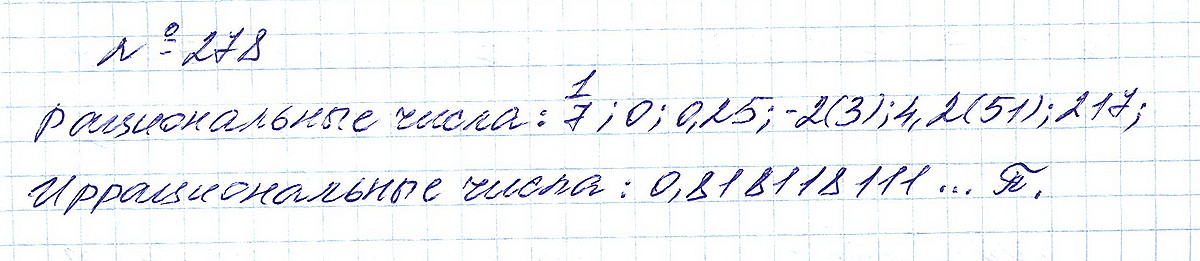 № 278
рациональные числа: 1/7; 0; 0,25; -2(3); 4,2(51); 217;
Иррациональные числа: 0,818118111... π.